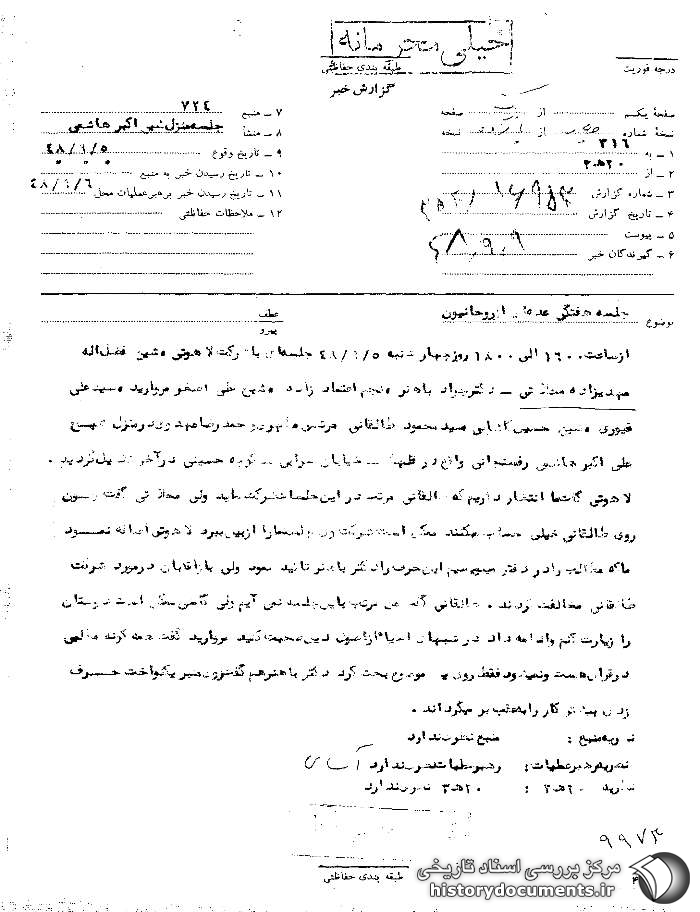 خیلی محرمانه
طبقه بندی حفاظتی
گزارش خبر
درجه فوریت
صفحه یکم از صفحه
نسخه شماره از نسخه
۱ - به ۳۱۶
۲ - از ۲۰ه۳
۳ - شماره گزارش
۴ - تاریخ گزارش
۵ - پیوست
۶ - گیرندگان خبر
۷ - منبع ۷۲۴
۸ - منشأ جلسه منزل شیخ اکبر هاشمی
۹ - تاریخ وقوع ۴۸/۱/۵
۱۰ - تاریخ رسیدن خبر به منبع
۱۱ - تاریخ رسیدن خبر برهبر عملیات محل ۴۸/۱/۶
۱۲ - ملاحظات حفاظتی
موضوع جلسه هفتگی عده‌ای از روحانیون
عطف
پیرو
از ساعت ۱۶۰۰ الی ۱۸۰۰ روز چهارشنبه ۴۸/۱/۵ جلسه‌ای با شرکت لاهوتی و شیخ فضل‌اله
مهدیزاده محلاتی - دکتر جواد باهنر و نجم اعتماد زاده و شیخ علی اصغر مروارید و سید علی
غیوری و شیخ حسین کاشانی سید محمود طالقانی مرتضی مطهری و حمد رضا مهدوی در منزل شیخ
علی اکبر هاشمی رفسنجانی واقع در قلهک - خیابان - کوچه حسینی در آخر تشکیل گردید .
لاهوتی گفت ما انتظار داریم که طالقانی مرتب در این جلسات شرکت نماید ولی محلاتی گفت چون
روی طالقانی خیلی حساب میکنند ممکن است شرکت وی جلسه ما را از بین ببرد لاهوتی اضافه نمود
ما که مطالب را در دفتر مینویسیم این حرف را دکتر باهنر تائید نمود ولی باز آقایان در مورد شرکت
طالقانی مخالفت کردند . طالقانی گفت من مرتب باین جلسه نمی آیم ولی گاهی ممکن است دوستان
را زیارت کنم و ادامه داد در شبهای احیاء از اصول دین صحبت کنید مروارید گفت همه گونه مطالبی
در قرآن هست و نمیشود فقط روی یک موضوع بحث کرد دکتر باهنر هم گفت روی منبر یکنواخت حرف
زدن بیشتر کار را بعقب بر میگرداند .
نظریه منبع : منبع نظری ندارد
نظریه رهبر عملیات : رهبر عملیات نظری ندارد
نظریه ۲۰ه۳ : ۲۰ه۳ نظری ندارد
۹۹۷۳
طبقه بندی حفاظتی
مرکز بررسی اسناد تاریخی
historydocuments.ir